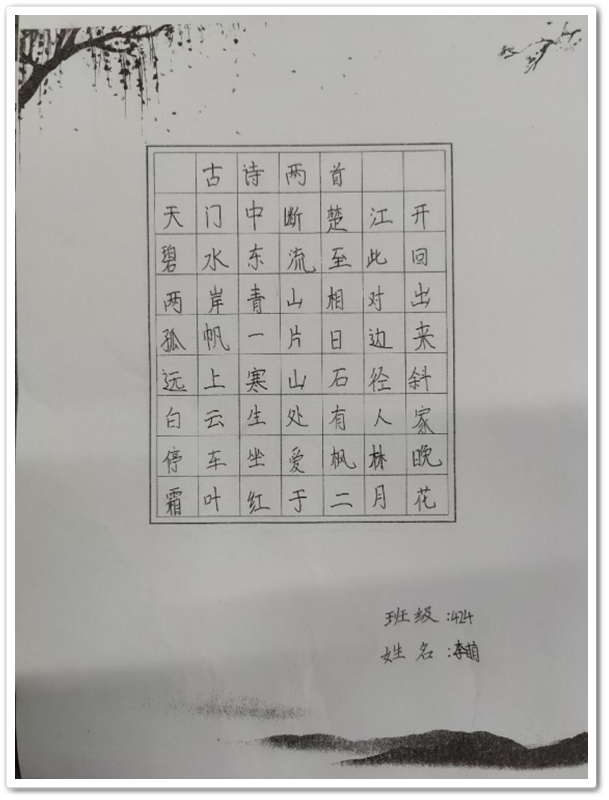 古诗两首
天门中断楚江开
碧水东流至此回
两岸青山相对出
孤帆一片日边来
远上寒山石径斜
白云生处有人家
停车坐爱枫林晚
霜叶红于二月花
班级:424
姓名:李萌